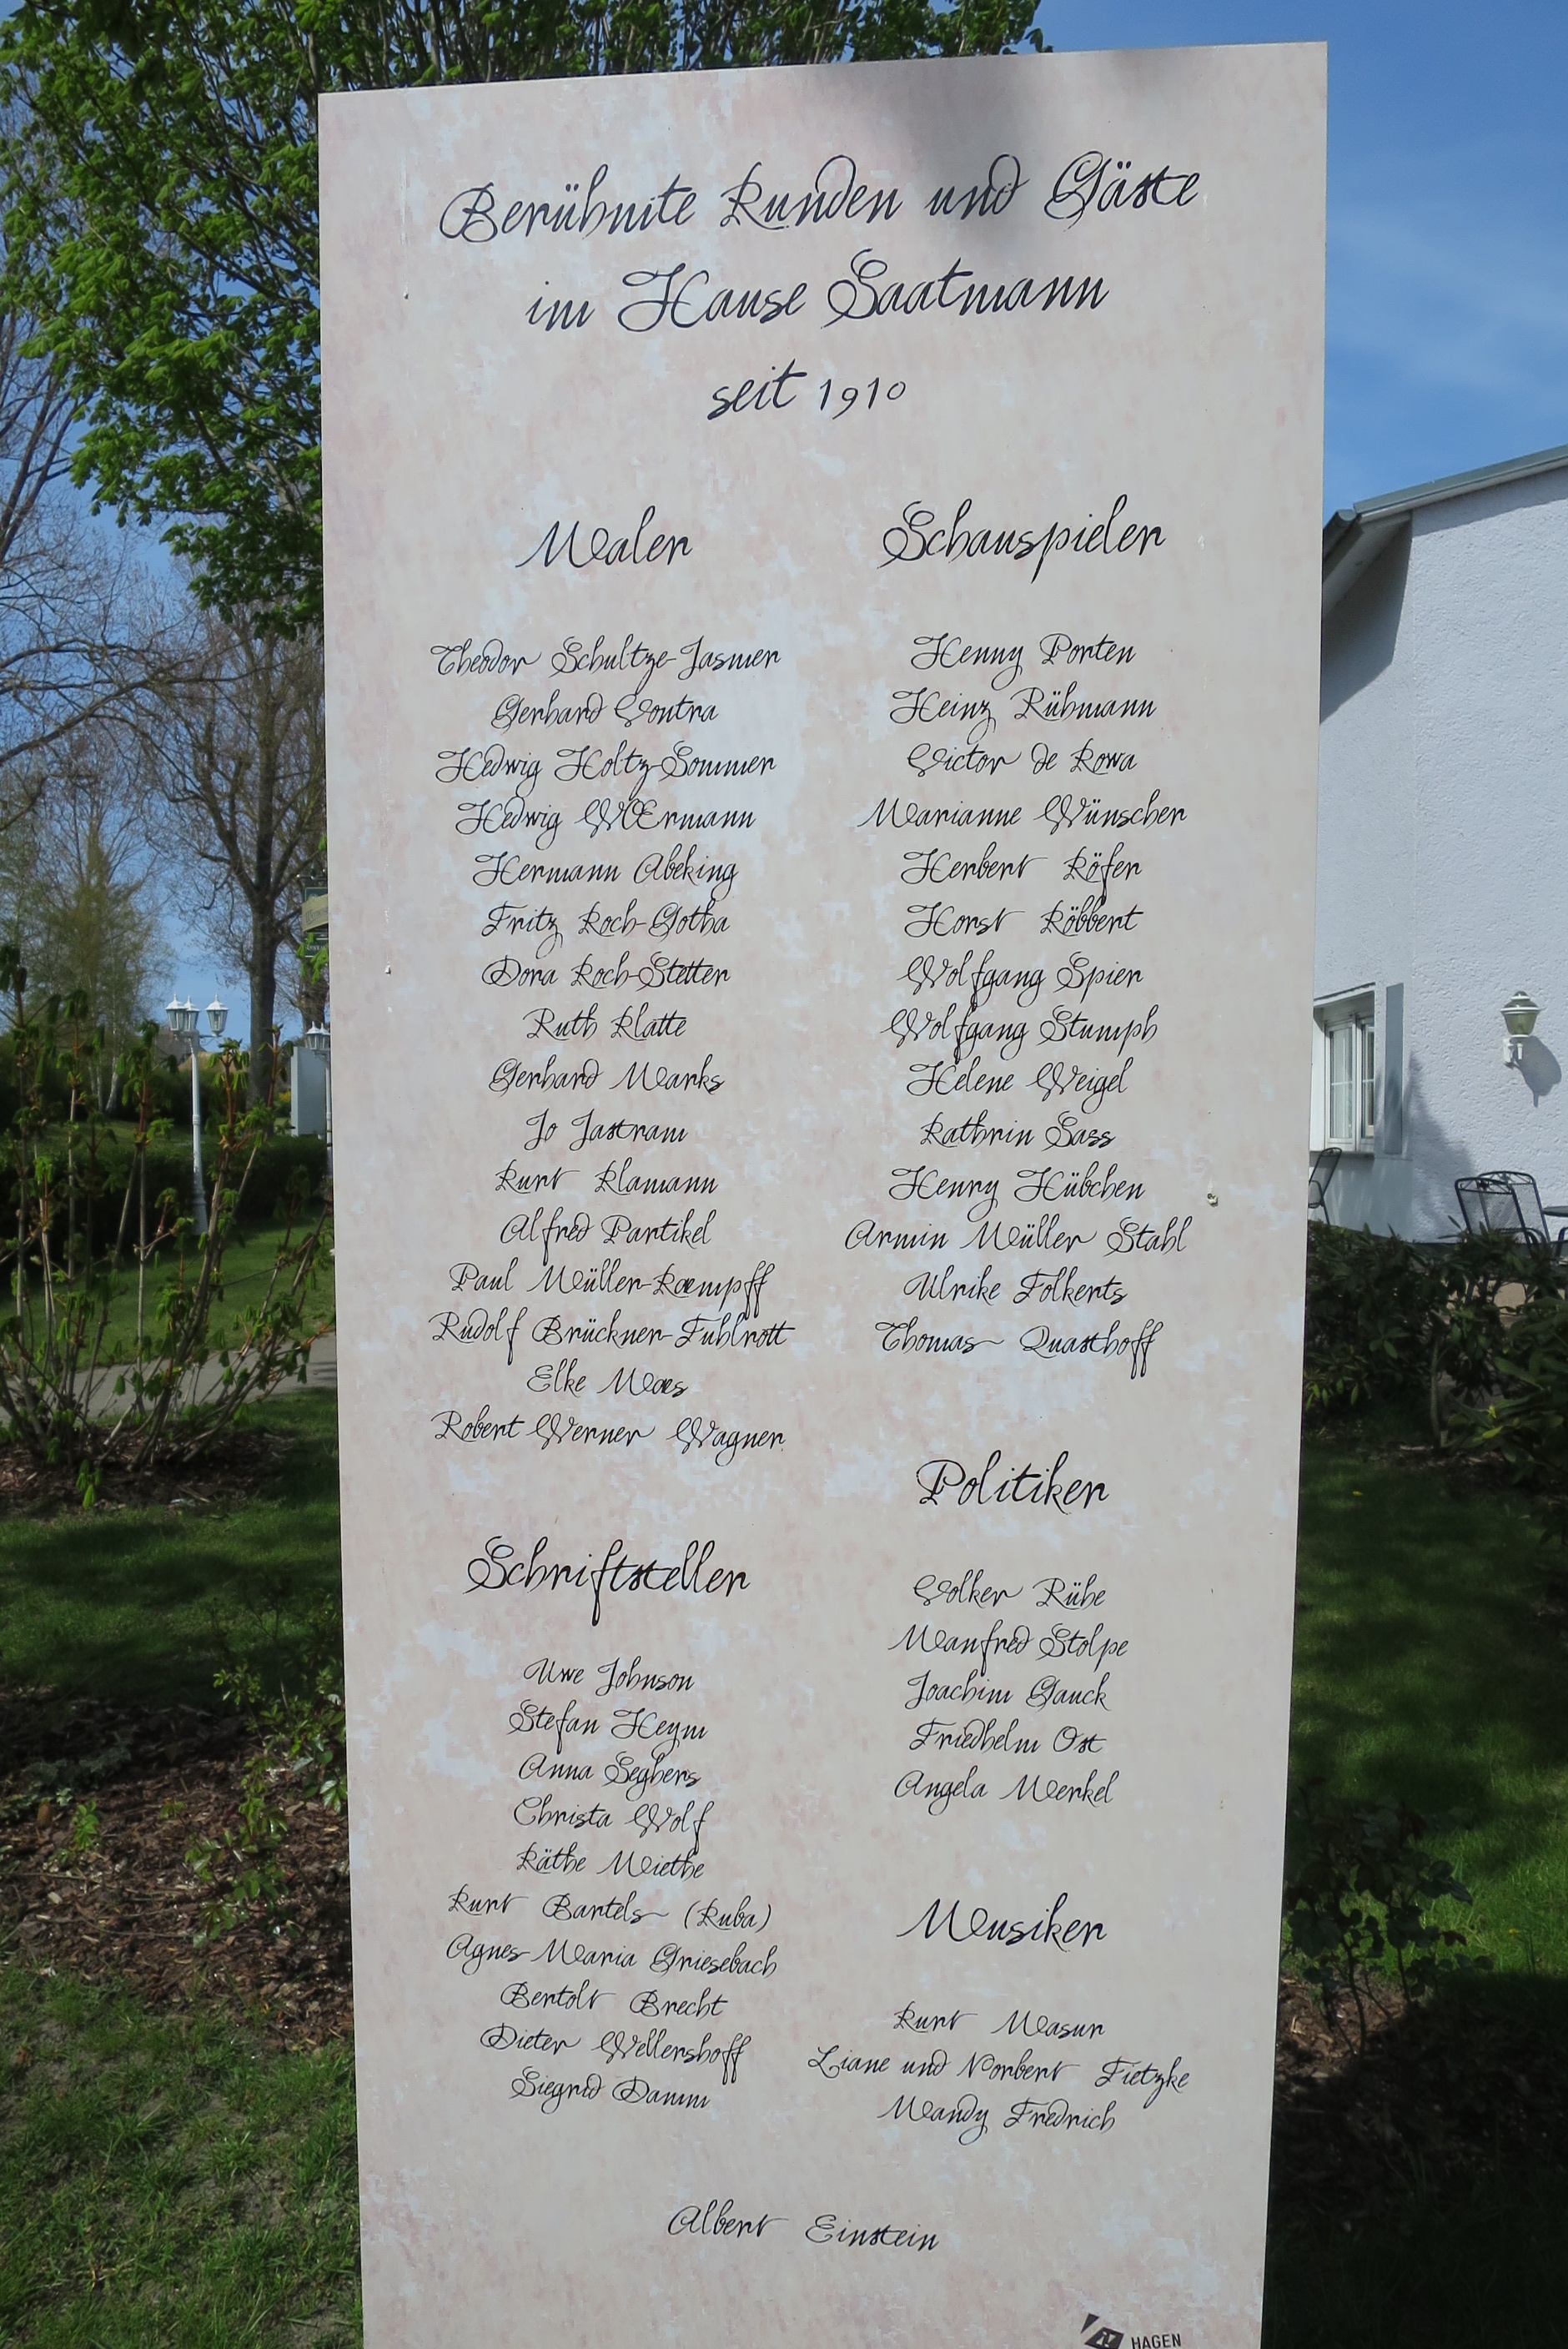 Berühmte Kunden und Gäste
im Hause Saatmann
seit 1910
Maler
Theodor Schultze-Jasmer
Gerhard Vontra
Hedwig Holtz-Sommer
Hedwig WŒrmann
Hermann Abeking
Fritz Koch-Gotha
Dora Koch-Stetter
Ruth Klatte
Gerhard Marks
Jo Jastram
Kurt Klamann
Alfred Partikel
Paul Müller-Kæmpff
Rudolf Brückner-Fuhlrott
Elke Maes
Robert Werner Wagner
Schriftsteller
Uwe Johnson
Stefan Heym
Anna Seghers
Christa Wolf
Käthe Miethe
Kurt Bartels (Kuba)
Agnes-Maria Griesebach
Bertolt Brecht
Dieter Wellershoff
Siegrid Damm
Schauspieler
Henny Porten
Heinz Rühmann
Victor de Kowa
Marianne Wünscher
Herbert Köfer
Horst Köbbert
Wolfgang Spier
Wolfgang Stumph
Helene Weigel
Kathrin Sass
Henry Hübchen
Armin Müller Stahl
Ulrike Folkerts
Thomas Quasthoff
Politiker
Volker Rühe
Manfred Stolpe
Joachim Gauck
Friedhelm Ost
Angela Merkel
Musiker
Kurt Masur
Liane und Norbert Fietzke
Mandy Fredrich
Albert Einstein
HAGEN